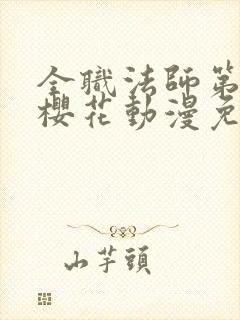 全職法師第
櫻花動漫免
山芋頭